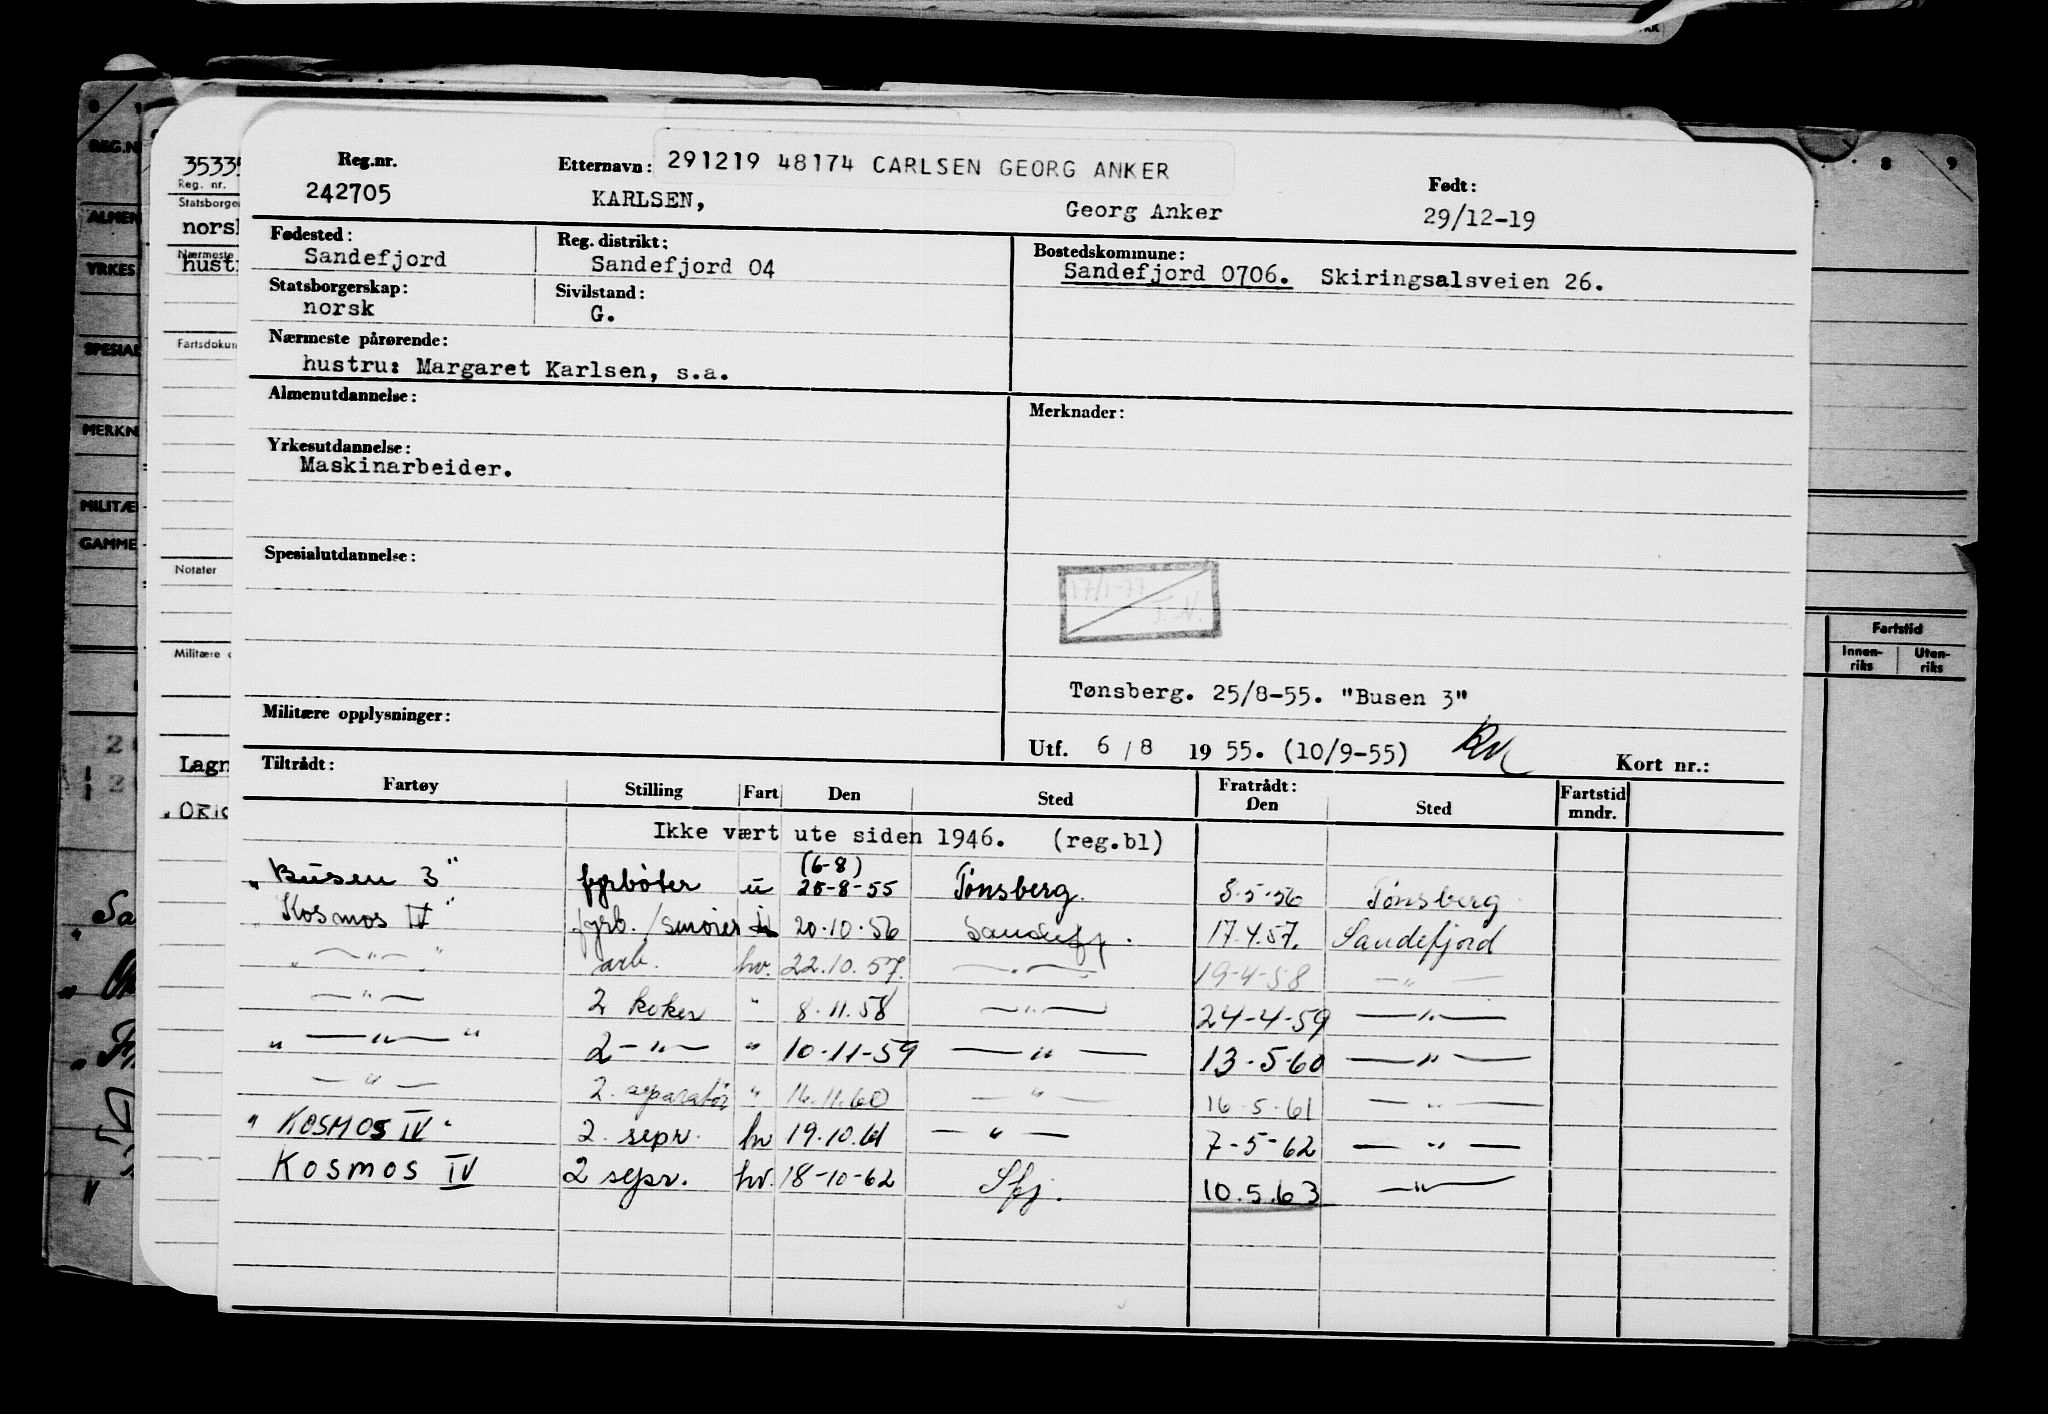 Reg.nr. Etternavn: 291219 48174 CARLSEN GEORG ANKER Født:
242705 KARLSEN, Georg Anker 29/12-19
Fødested: Reg. distrikt: Bostedskommune:
Sandefjord Sandefjord 04 Sandefjord 0706. Skiringsalsveien 26.
Statsborgerskap: Sivilstand:
norsk G.
Nærmeste pårørende:
hustru: Margaret Karlsen, s.a.
Almenutdannelse: Merknader:
Yrkesutdannelse:
Maskinarbeider.
Spesialutdannelse:
17/1-77
T.N.
Tønsberg. 25/8-55. "Busen 3"
Militære opplysninger:
Utf. 6/8 1955. (10/9-55) Kort nr.:
Tiltrådt: Fratrådt:
Fartøy Stilling Fart Den Sted Den Sted Fartstid mndr.
Ikke vært ute siden 1946. (reg.bl)
(6-8)
"Busen 3" fyrbøter u 25-8-55 Tønsberg. 8-5-56 Tønsberg
"Kosmos IV" fyrb./smører 20.10.56 Sandefj. 17.4.57. Sandefjord
" —"— " arb. hv. 22.10.57. —"— 19-4-58 —"—
—"— 2 koker " 8.11.58 —"— 24-4-59 —"—
" —"— " 2 —"— " 10-11-59 —"— 13-5-60 —"—
—"— 2. apparatør " 14.11.60 —"— 16-5-61 —"—
"KOSMOS IV" 2. sepr. hv 19.10.61 —"— 7-5-62 —"—
KOSMOS IV 2 sepr. hv. 18-10-62 Sfj. 10.5.63 —"—
35335
Reg. nr.
Statsborger
norsk
Nærmeste
hustr
Fartsdoku
Notater
Militære
Lagn
REG.N
ALMEN
YRKES
SPESIAL
MERKN
MILITÆ
GAMME
8 9
Fartstid
Innen-riks Uten-riks